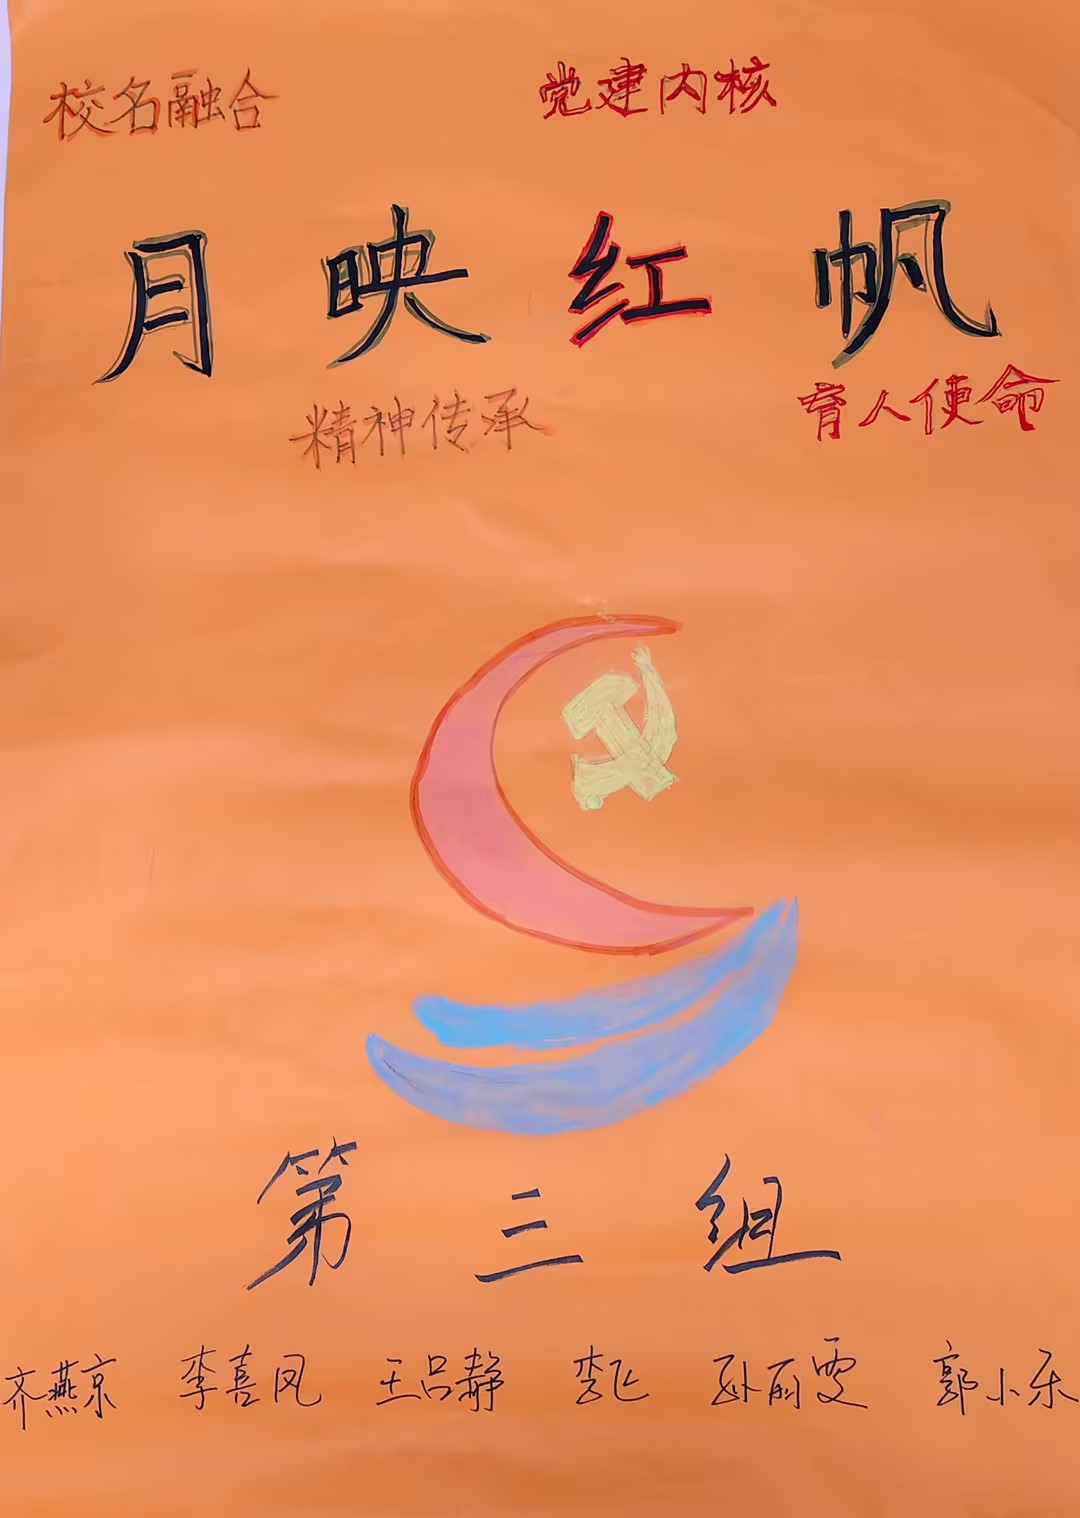 校名融合 党建内核
月映红帆
精神传承 育人使命
第三组
齐燕京 李喜凤 王吕静 李飞 孙丽雯 郭小乐